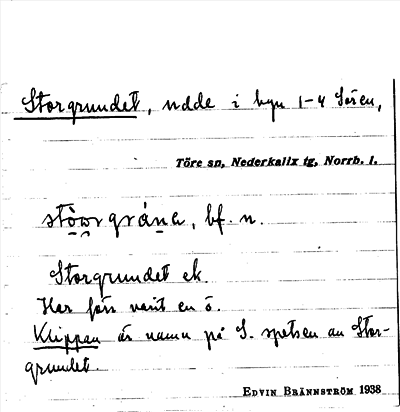 Storgrundet, udde i byn 1-4 Sören,
Töre sn, Nederkalix tg, Norrb. l.
bf. n.
Storgrundet ek.
Har förr varit en ö.
Klippan är namn på S. spetsen av Stor-
grundet.
EDVIN BRÄNNSTRÖM 1938